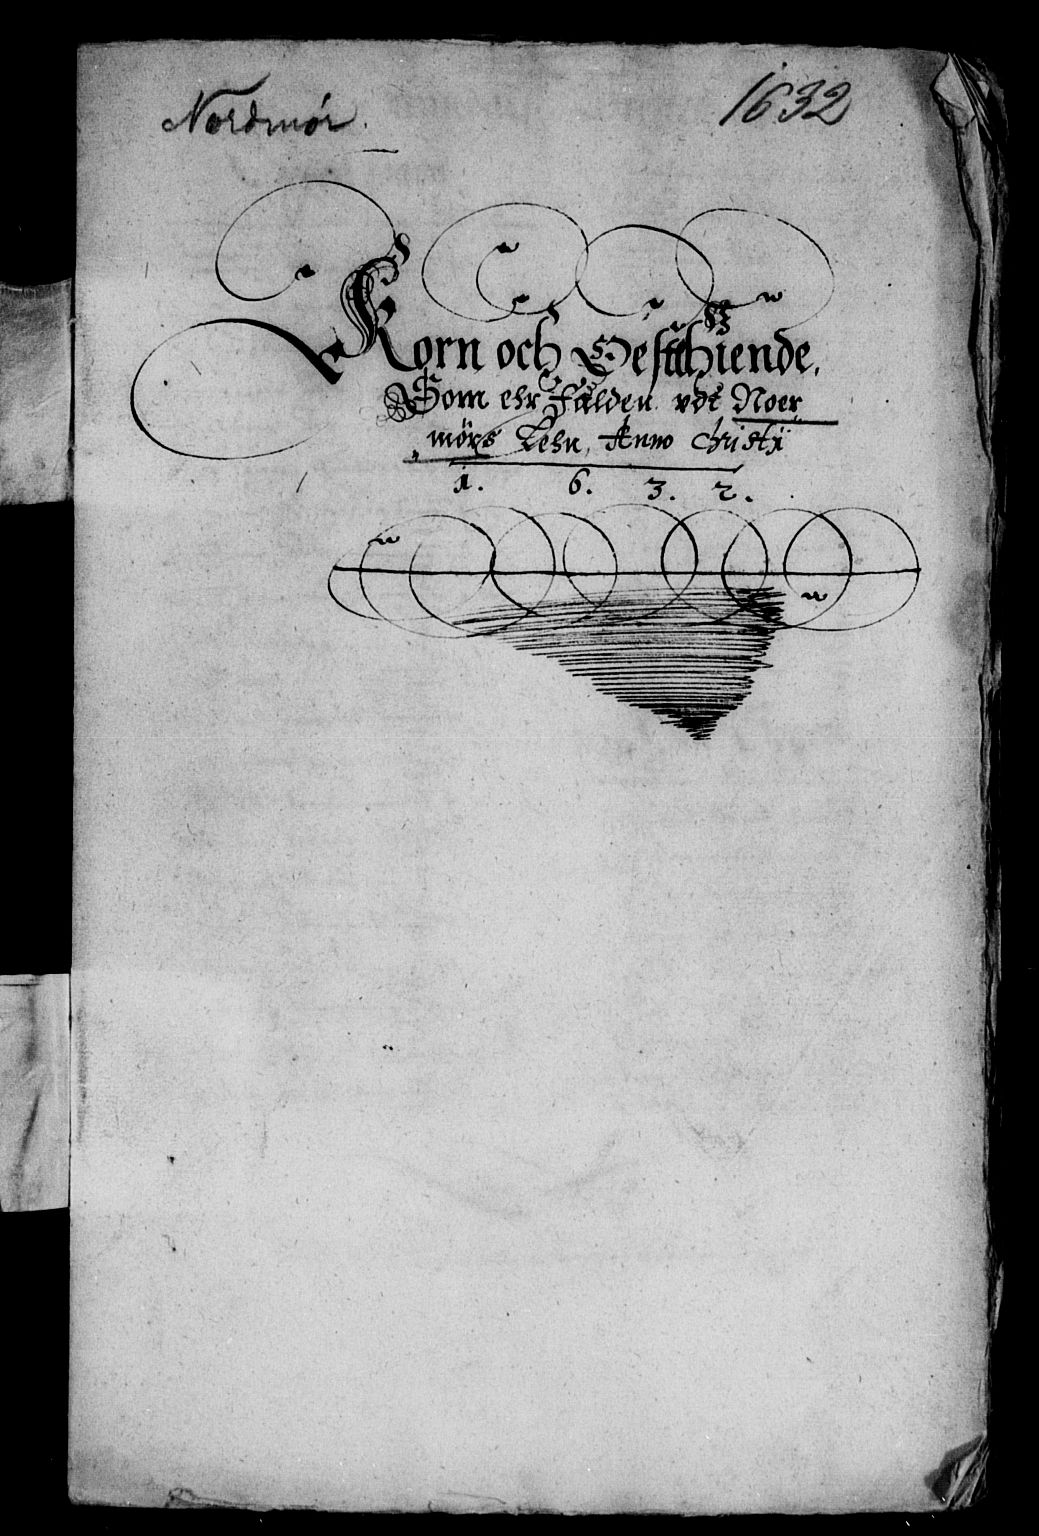 Nordmør.
1632
Korn och Qvegthiende,
Som ehr Falden vdi Noer
mørs Lehn, Anno Christi
1. 6. 3. 2.